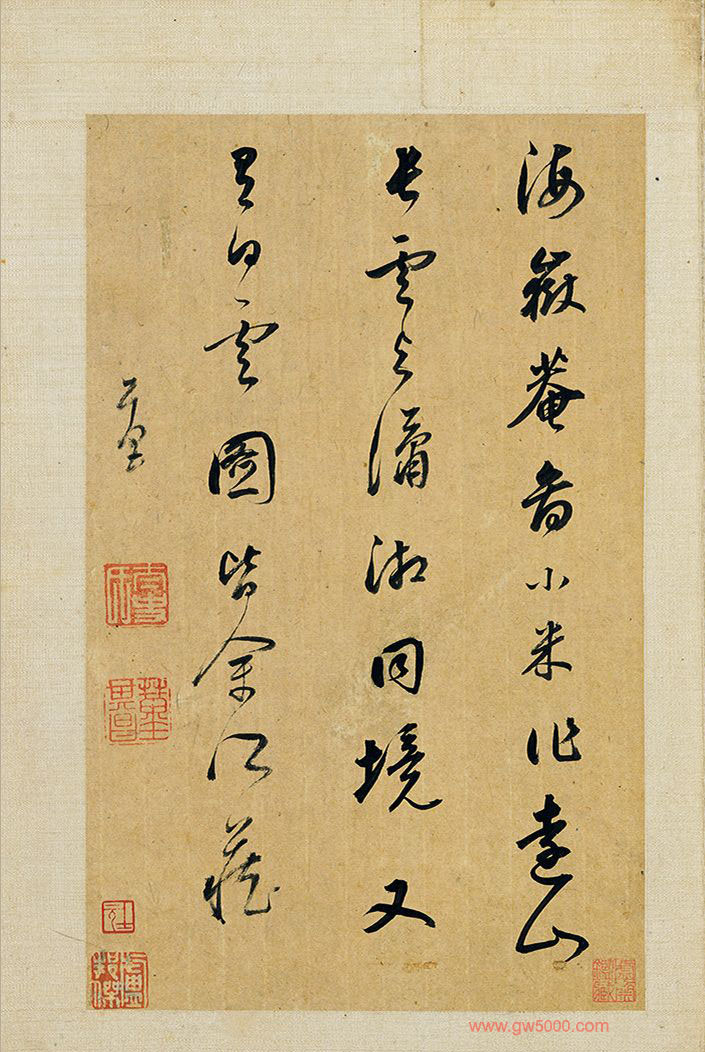 海嶽菴小米作遠山
長雲與瀟湘同境又
有白雲圖皆余所藏
玄宰
董其昌
www.gw5000.com